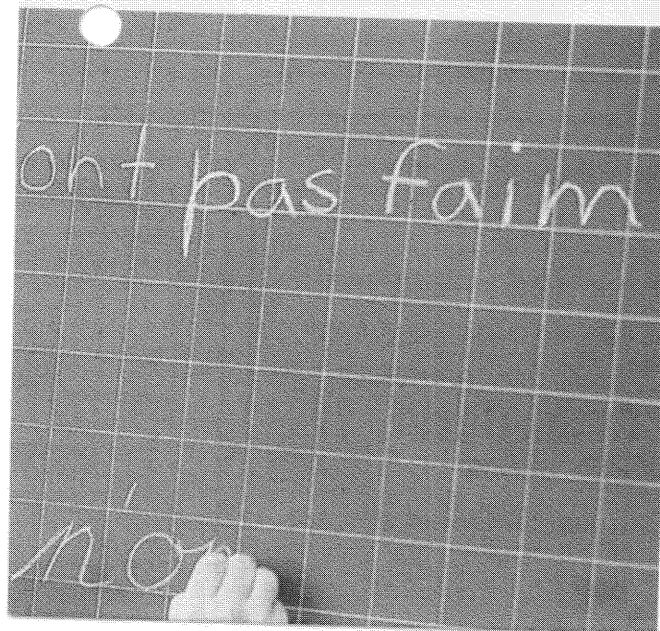 ont pas faim
n'on